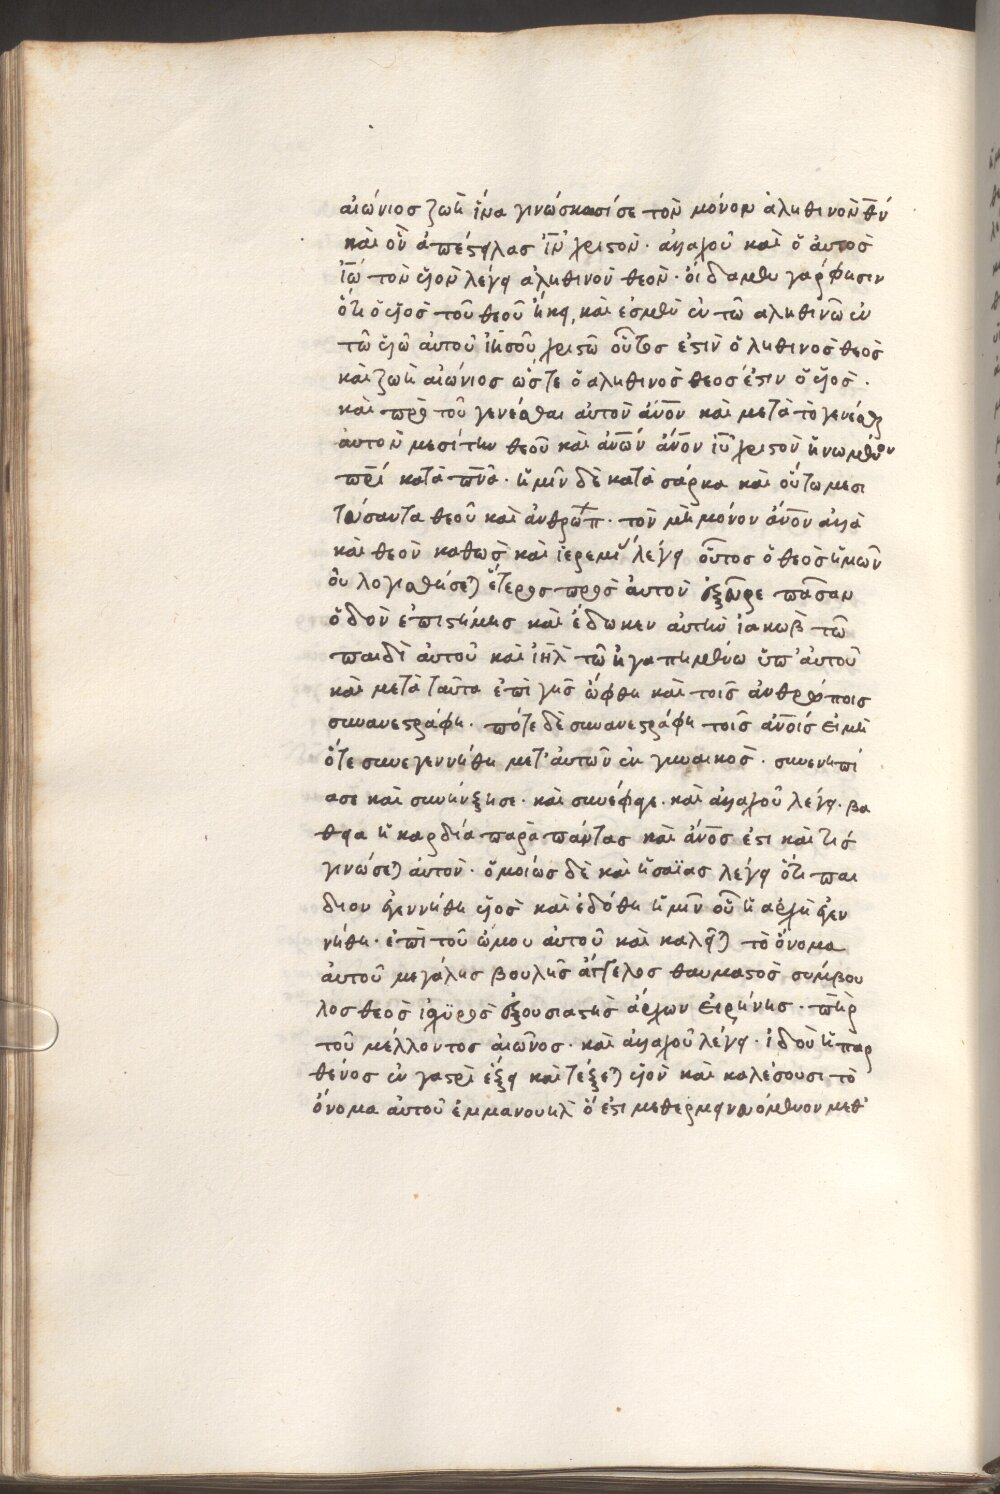 αἰώνιος ζωὴ ἵνα γινώσκωσί σε τὸν μόνον ἀληθινὸν θ̅ν̅
καὶ ὃν ἀπέστειλας ι̅ν̅ χριστὸν· ἀλλαχοῦ καὶ ὁ αὐτὸς
ι̅ω̅ τὸν υἱὸν λέγει ἀληθινὸν θεὸν· οἴδαμεν γάρ φησιν
ὅτι ὁ υἱὸς τοῦ θεοῦ ἥκει, καὶ ἐσμὲν ἐν τῶ αληθινῶ ἐν
τῶ υἱῶ αὐτοῦ ἰησοῦ χριστῶ οὗτος ἐστὶν ὁ ληθινος θεὸς
καὶ ζωὴ αἰώνιος ὥστε ὁ αληθινὸς θεος ἐστιν ὁ υἱὸς.
καὶ πρὸ τοῦ γενέσθαι αὐτὸν α̅ν̅ο̅ν̅ καὶ μετὰ τὸ γενέσθαι
ἀυτὸν μεσίτην θεοῦ καὶ α̅ν̅ω̅ν̅ α̅ν̅ο̅ν̅ ι̅ν̅ χριστὸν ἡνωμένον
π̅ρ̅ι̅ κατὰ π̅ν̅α̅· ἡμῖν δὲ κατὰ σάρκα καὶ οὕτω μεσι
τεύσαντα θεοῦ καὶ ἀνθρώπ· τὸν μὴ μόνον α̅ν̅ο̅ν̅ ἀλλὰ
καὶ θεὸν καθως καὶ ἱερεμι λέγει οὗτος ὁ θεὸς ἡμῶν
οὐ λογισθήσεται ἕτερος προς αὐτὸν ἐξεῦρε πᾶσαν
ὁδὸν ἐπιστήμης καὶ ἔδωκεν αυτὴν ἰακωβ τῶ
παιδὶ αὐτοῦ καὶ ι̅η̅λ̅ τῶ ἠγαπημένω ὑπ' αὐτοῦ
καὶ μετὰ ταῦτα ἐπὶ γῆς ὤφθη καὶ τοις ἀνθρώποις
συνανεστράφη· πότε δὲ συνανεστράφη τοις α̅ν̅ο̅ι̅ς̅ ει μὴ
ὅτε συνεγεννήθη μετ' αυτῶν ἐκ γυναικος· συνενηπί
ασε καὶ συνηύξησε· καὶ συνέφαγε· καὶ ἀλλαχοῦ λέγει· βα
θεια ἡ καρδία παρὰ πάντας καὶ α̅ν̅ο̅ς̅ ἐστι καὶ τίς
γνώσεται αὐτὸν· ὁμοίως δὲ καὶ ἡσαΐας λέγει ὅτι παι
διον ἐγεννήθη υἱὸς καὶ ἐδόθη ἡμῖν οὗ ἡ ἀρχὴ ἐγεν
νήθη· ἐπὶ τοῦ ὤμου αὐτοῦ καὶ καλεῖται τὸ ὄνομα
ἀυτοῦ μεγάλης βουλῆς ἄγγελος θαυμαστὸς σύμβου
λος θεὸς ἰσχυρὸς ἐξουσιαστὴς ἄρχων εἰρήνης· π̅η̅ρ̅
τοῦ μέλλοντος αἰῶνος· καὶ ἀλλαχοῦ λέγει· ἰδοὺ ἡ παρ
θένος ἐν γαστρὶ ἕξει καὶ τέξεται υἱὸν καὶ καλέσουσι τὸ
ὄνομα ἀυτοῦ ἐμμανουὴλ ὅ ἐστι μεθερμηνευόμενον μεθ'